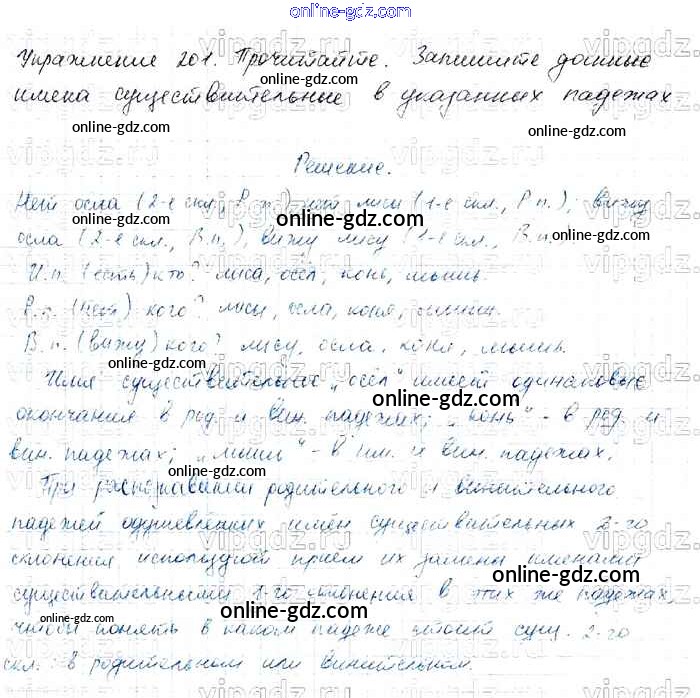 online-gdz.com
Упражнение 201. Прочитайте. Запишите данные
имена существительные в указанных падежах
online-gdz.com
Решение.
Нет осла (2-е скл., Р. п.), нет лисы (1-е скл., Р. п.), вижу
online-gdz.com
осла (2-е скл., В. п.), вижу лису (1-е скл., В. п.
online-gdz.com
И. п. (есть) кто? лиса, осёл, конь, мышь.
Р. п. (нет) кого? лисы, осла, коня, мыши.
online-gdz.com
В. п. (вижу) кого? лису, осла, коня, мышь.
online-gdz.com
Имя существительное „осёл" имеет одинаковые
online-gdz.com
окончания в род. и вин. падежах; „конь" - в род. и
вин. падежах; „мышь" - в им. и вин. падежах.
online-gdz.com
При распознавании родительного и винительного
падежей одушевлённых имен существительных 2-го
склонения используй приём их замены именами
online-gdz.com
существительными 1-го склонения в этих же падежах,
online-gdz.com
чтобы понять в каком падеже стоит сущ. 2-го
скл.: в родительном или винительном.
online-gdz.com
online-gdz.com